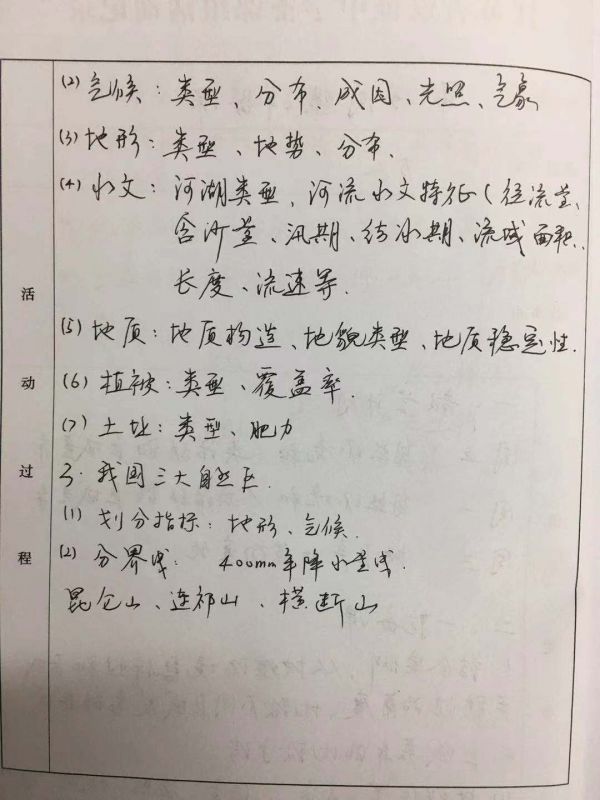 (2) 气候：类型、分布、成因、光照、气象
(3) 地形：类型、地势、分布.
(4) 水文：河湖类型，河流水文特征（径流量、
含沙量、汛期、结冰期、流域面积、
长度、流速等.
(5) 地质：地质构造、地貌类型、地质稳定性.
(6) 植被：类型、覆盖率.
(7) 土址：类型、肥力
3. 我国三大自然区.
(1) 划分指标：地形、气候.
(2) 分界线： 400mm年降水量线.
昆仑山、连祁山、横断山
活
动
过
程